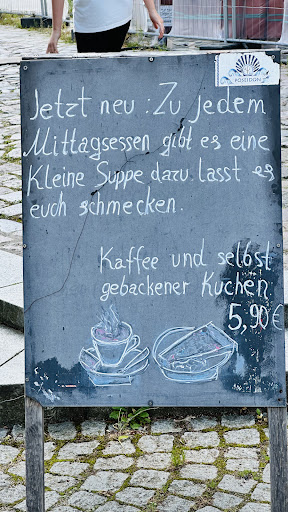 POSEIDON
Jetzt neu : Zu jedem
Mittagsessen gibt es eine
Kleine Suppe dazu lasst es
euch schmecken.
Kaffee und selbst
gebackener Kuchen
5,90€